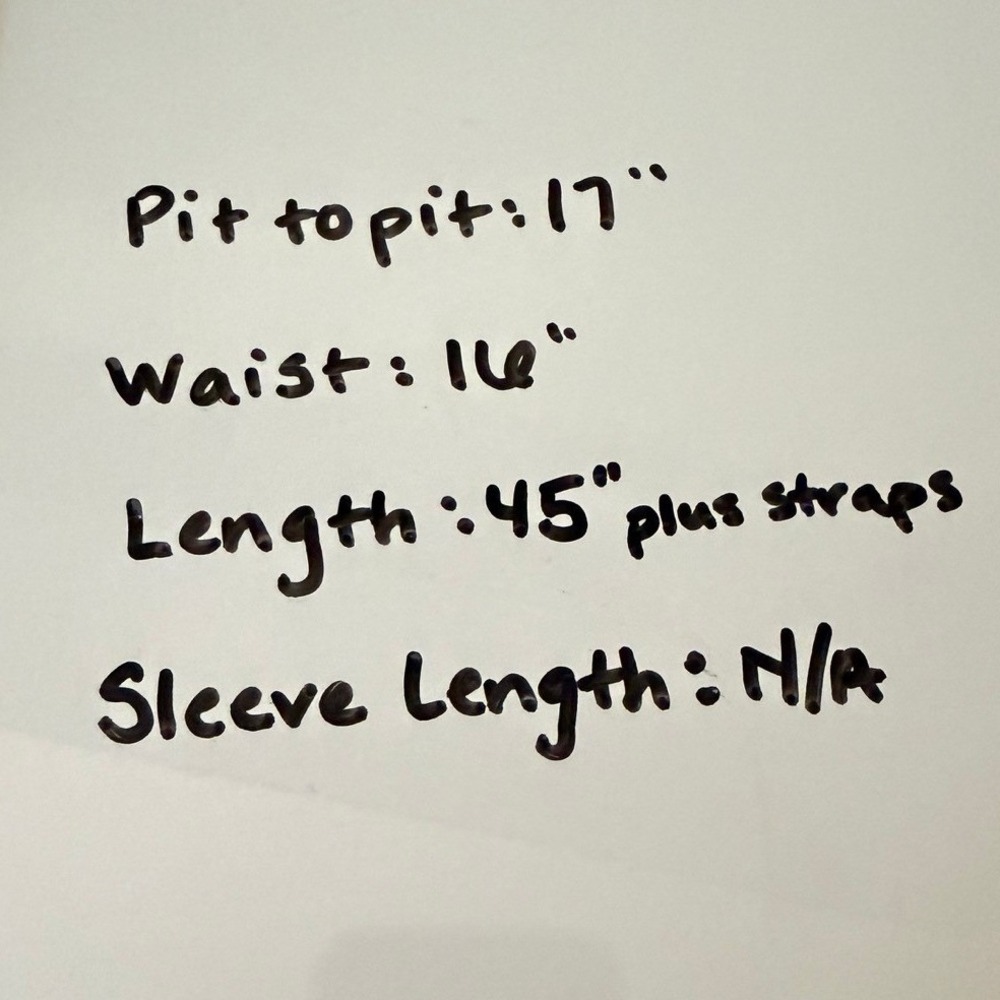 Pit to pit: 17"
Waist: 16"
Length: 45" plus straps
Sleeve Length: N/A